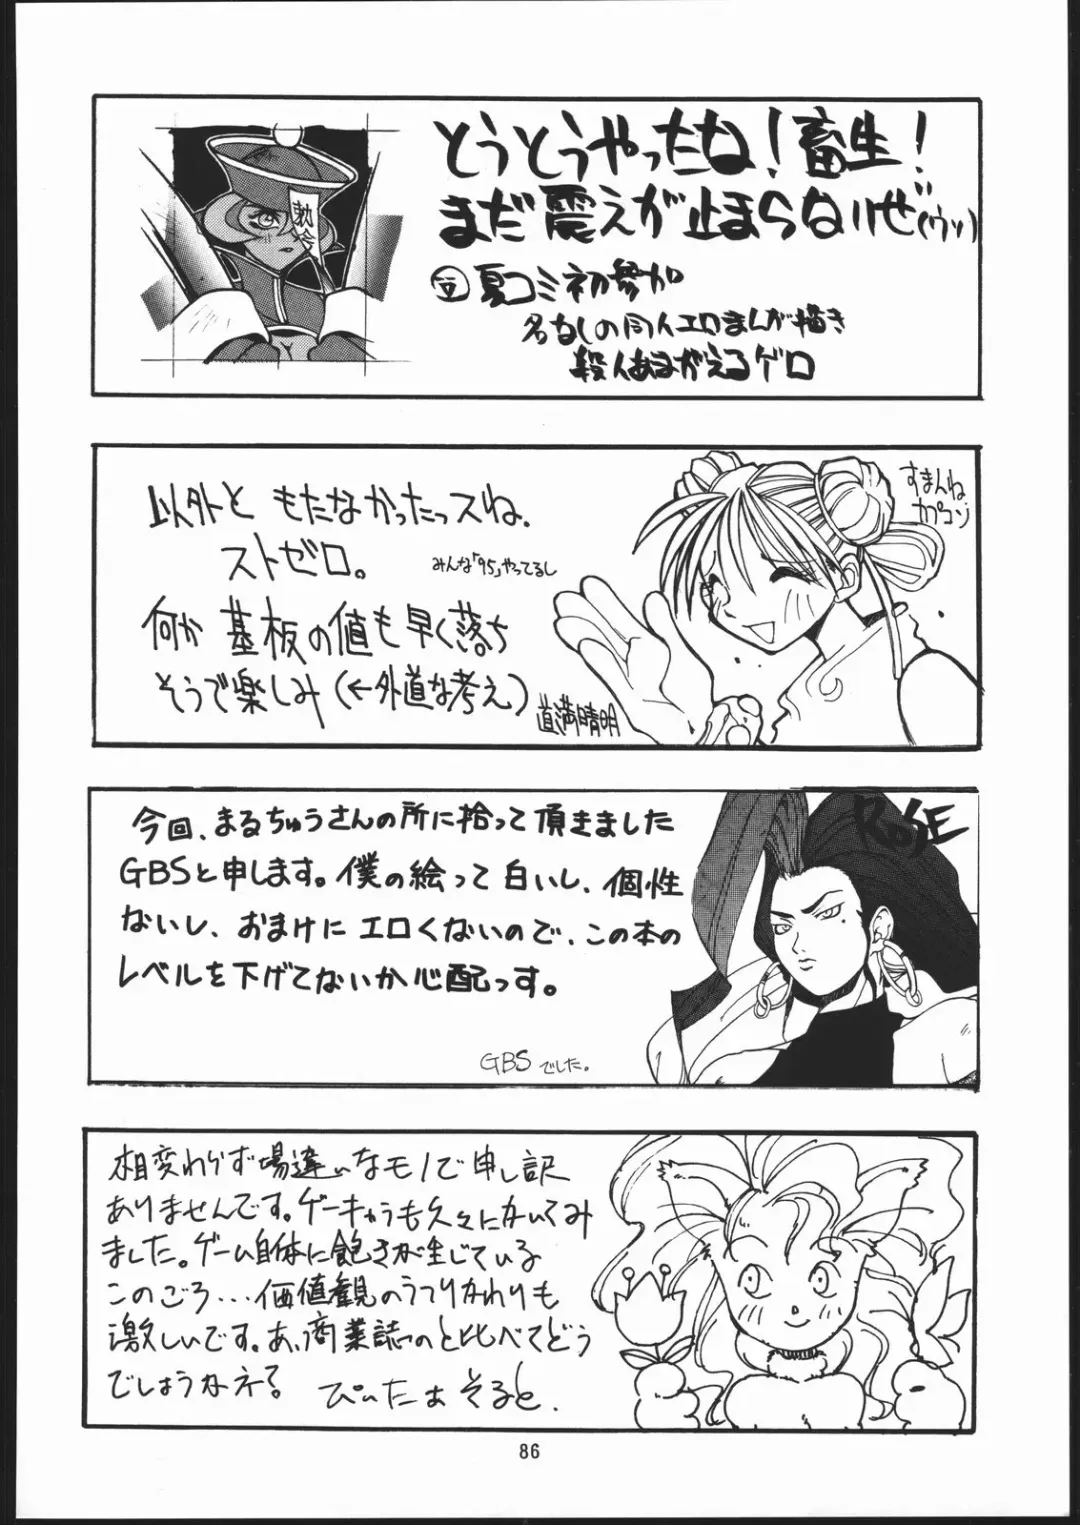 とうとうやったね！畜生！
まだ震えが止まらないぜ(ウッ)
夏コミ初参加
名なしの同人エロまんが描き
殺人あまがえるゲロ
勅令
以外と もたなかったっスね、
ストゼロ。
みんな「95」やってるし
何か 基板の値も早く落ち
そうで楽しみ(←外道な考え)
道満晴明
すまんね
カプコン
今回、まるちゅうさんの所に拾って頂きました
GBSと申します。僕の絵って白いし、個性
ないし、おまけにエロくないので、この本の
レベルを下げてないか心配っす。
GBSでした。
ROSE
相変わらず場違いなモノで申し訳
ありませんです。ゲーキャラも久々にかいてみ
ました。ゲーム自体に飽きが生じている
このごろ...価値観のうつりかわりも
激しいです。あ、商業誌のと比べてどう
でしょうかネ？
ぴいたぁ そると.
86